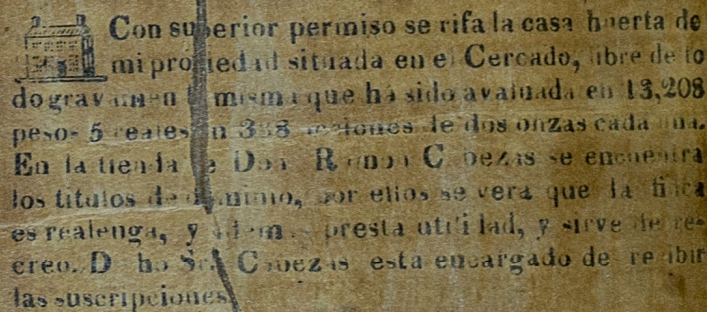 Con superior permiso se rifa la casa huerta de
mi propiedad situada en el Cercado, libre de to
do gravamen la misma que ha sido avaluada en 13,208
pesos 5 reales en 338 acciones de dos onzas cada una.
En la tienda de Don Ramon Cabezas se encuentra
los titulos de dominio, por ellos se vera que la finca
es realenga, y ademas presta utilidad, y sirve de re-
creo. Dicho Sor Cabezas esta encargado de recibir
las suscripciones